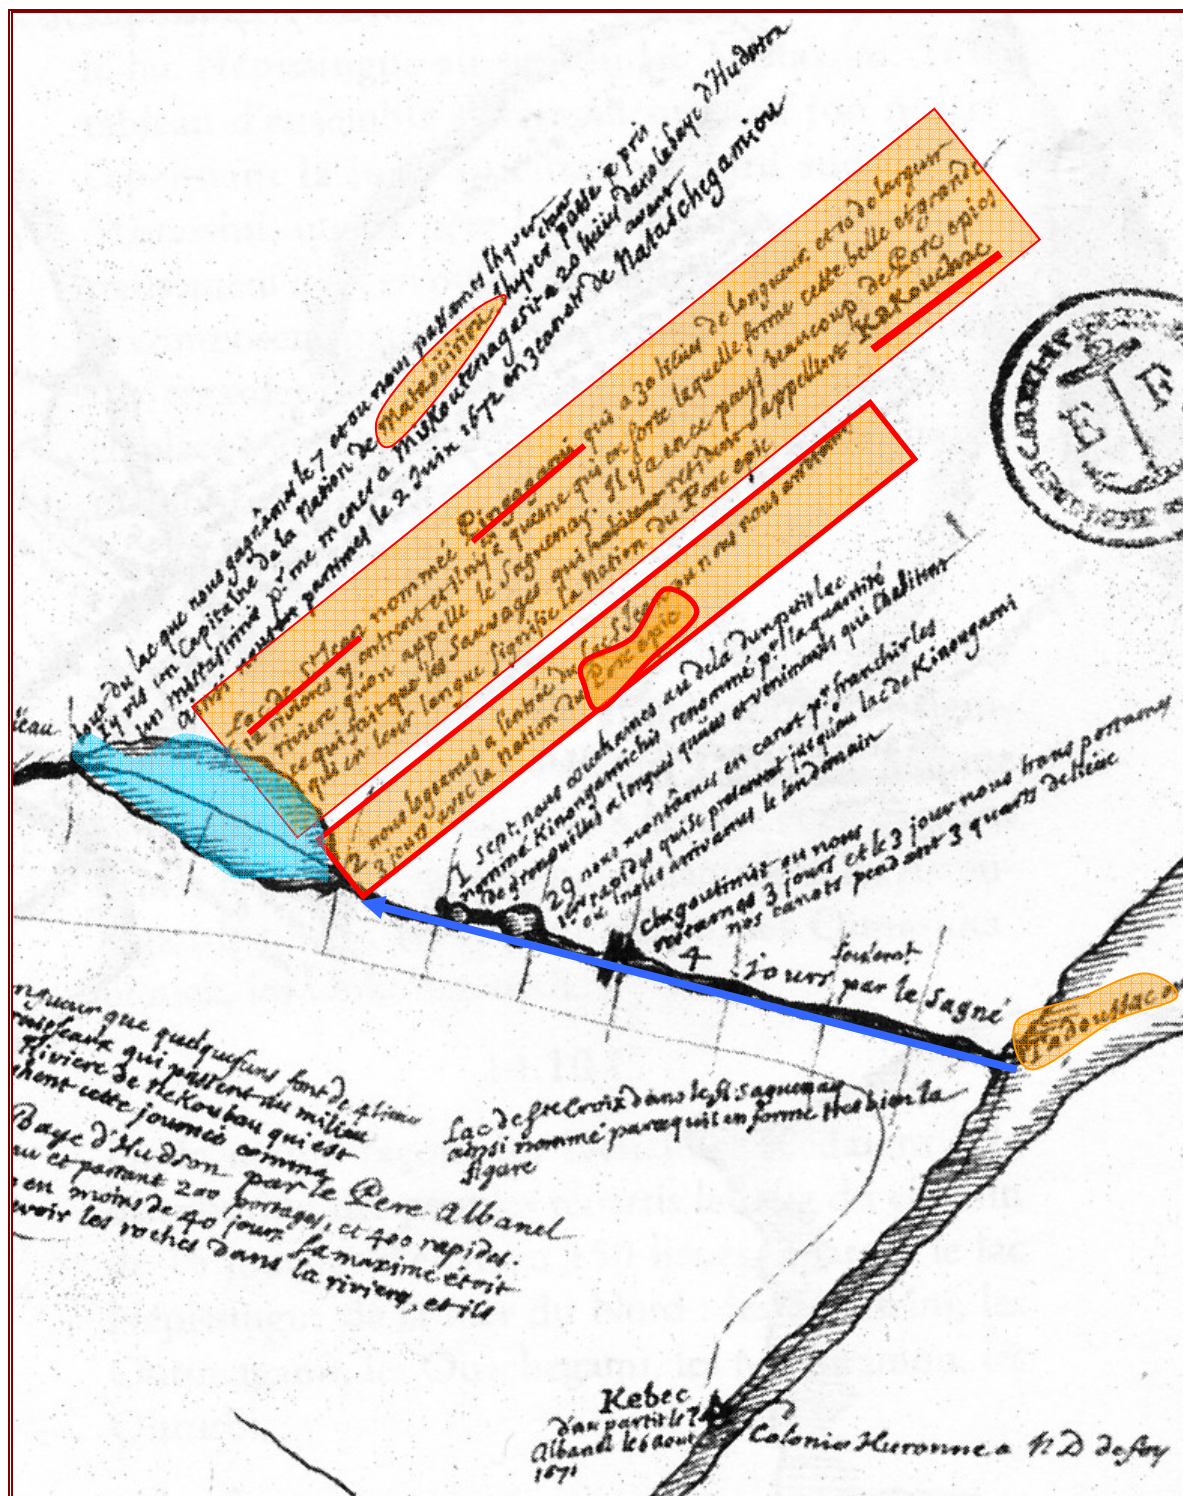 haut du lac que nous gagnâmes le 7 et ou nous passames l'hyver
il y vis un Capitaine de la Nation de Mataoüiriou
un mistassinié pr me mener a Miskoutenagasit a 20 lieües dans la baye d'Hudson
ainsi nous en partimes le 2 Juin 1672 en 3 canots de Nataschegamiou
Lac de St Jean nommé Pingagami qui a 30 lieües de longueur et 10 de largeur
12 rivieres y entrent et il n'y a qu'une qui en sorte laquelle forme cette belle et grande
riviere qu'on appelle le Saguenay. Il y a en ce pays beaucoup de Porc epics
ce qui fait que les Sauvages qui resident s'appellent Kakouchac
qui en leur langue signifie la Nation du Porc epic
2 nous logeames a l'entrée du lac St Jean ou nous
3 jours avec la Nation du Porc epic
1 sept. nous couchames au dela d'un petit lac
nommé Kinougamichis renommé pr la quantité
de grenouilles a longues queües et venimeuses qui l'habitent
29 nous montâmes en canot pr franchir les
rapides qui se presentent jusqu'au lac de Kinougami
ou nous arrivames le lendemain
chegoutimit ou nous
3 jours et le 3 jour nous transportames
nos canots pendant 3 quarts de lieüe
4 jours par le Sagné
Tadoussac ou
eau
ngueur que quelquesuns font de 4 lieues
qui passent au milieu
Riviere de Nekoubau qui est
cette journée comma
Baye d'Hudson par le Pere Albanel
au et partant 200 portages, et 400 rapides.
en moins de 40 jours la maxime étoit
voir les roches dans la riviere, et ils
Lac de Ste Croix dans le fl. Saguenay
ainsi nommé parcequil en forme tres bien la
figure
Kebec
d'au partit le
Albanel le 6 aout
1671
Colonie Huronne a N.D de foy
E